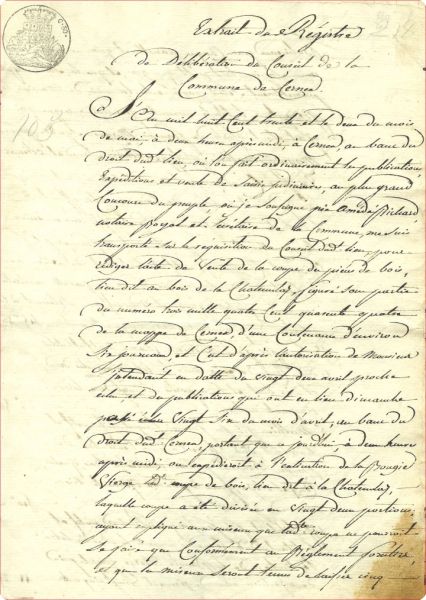 Extrait du Régistre
de Délibération du Conseil de la
Commune de Cernex.
L'an mil huit Cent trente et le deux du mois
de mai, à deux heures après midi, à Cernex, au banc du
Droit dud. lieu, où l'on fait ordinairement les publications,
Expéditions et vente de Saisie judiciaires, au plus grand
Concours du peuple, où je soussigné pre Amédé Richard
notaire Royal et Sécrétaire de la Commune, me suis
transporté sur la réquisition du Conseil dud. lieu, pour
rédiger l'acte de Vente de la coupe du pièce de bois,
lieu dit au bois de la Chatenulaz, figuré sous partie
du numéro trois mille quatre Cent quarante quatre
de la mappe de Cernex, d'une Contenance d'environ
Six journaux, et C'est d'après l'autorisation de Monsieur
l'intendant en datte du vingt deux avril proche
échu, et des publications qui ont eu lieu dimanche
vingt du mois d'avril, au banc du
Droit dud. Cernex, portant que ce jourd'hui, à deux heures
après midi, on expédieroit à l'extinction de la Bougie
Vierge lad. coupe de bois, lieu dit à la Chatenulaz,
laquelle coupe a été divisée en vingt deux portions,
ayant expliqué aux miseurs que lad.te coupe ne pourroit
se faire que Conformément au Réglement forestier,
et que les miseurs seront tenus de laisser cinq